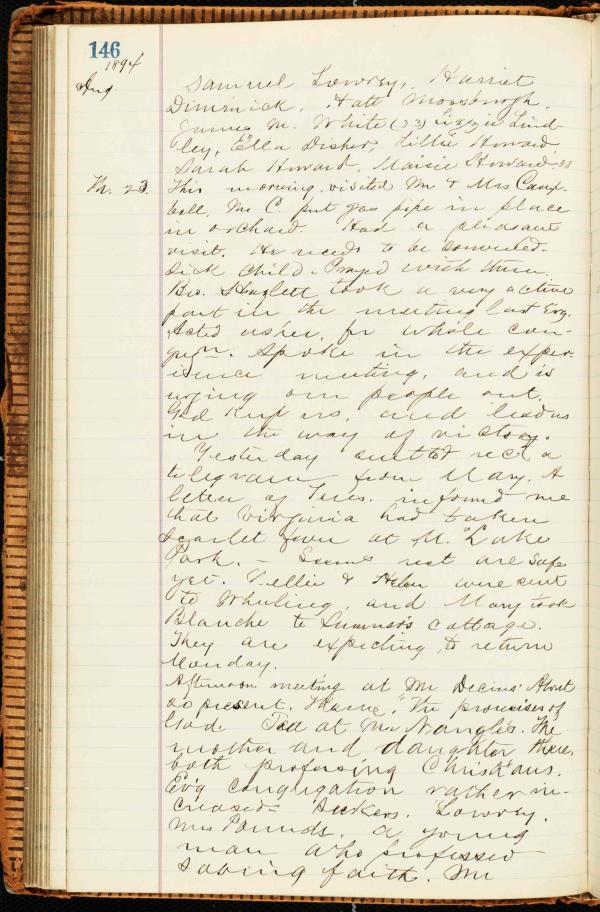 146
1894
Aug
Samuel Lowrey, Harriet
Dimmick. Hatt
M. White (23) Lizzie Lind-
ley, Ella Disher, Lillie Howard,
Sarah Howard, Maisie Howard. 33
Th. 23. This morning visited Mr & Mrs Camp-
bell, Mr C. put gas pipe in place
in orchard. Had a pleasant
visit. He needs to be converted.
Sick child. Prayed with them.
Bro. Hazlett took a very active
part in the meeting last Evg.
Acted usher, for whole con-
gregn. Spoke in the exper-
ience meeting, and is
urging our people out.
God keep us, and lead us
in the way of victory.
Yesterday recd a
telegram from Mary. A
letter of Tues. informed me
that Virginia had taken
scarlet fever at M. Lake
Park. – rest are safe
yet. Nellie & Helen were sent
to Wheeling, and Mary took
Blanche to Sumner's cottage.
They are expecting to return
Monday.
Afternoon meeting at Mr About
20 present. Theme, "The promises of
God. Tea at Mr Nangle's. The
mother and daughter there,
both professing Christians.
Ev'g congregation rather in-
creased. Seekers. Lowrey.
Mrs Pounds. A young
man who professed
saving faith. Mr